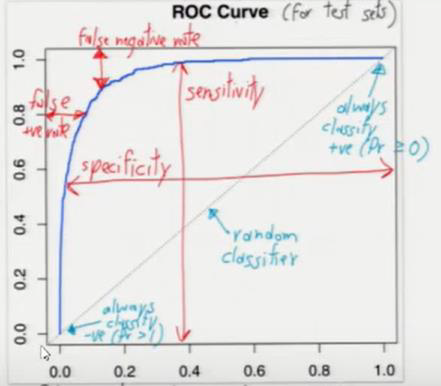 ROC Curve (for test sets)
false negative rate
false
+ve rate
sensitivity
specificity
always
classify
+ve (Pr ≥ 0)
random
classifier
always
classify
-ve (Pr > 1)
1.0
0.8
0.6
0.4
0.2
0.0
0.0 0.2 0.4 0.6 0.8 1.0